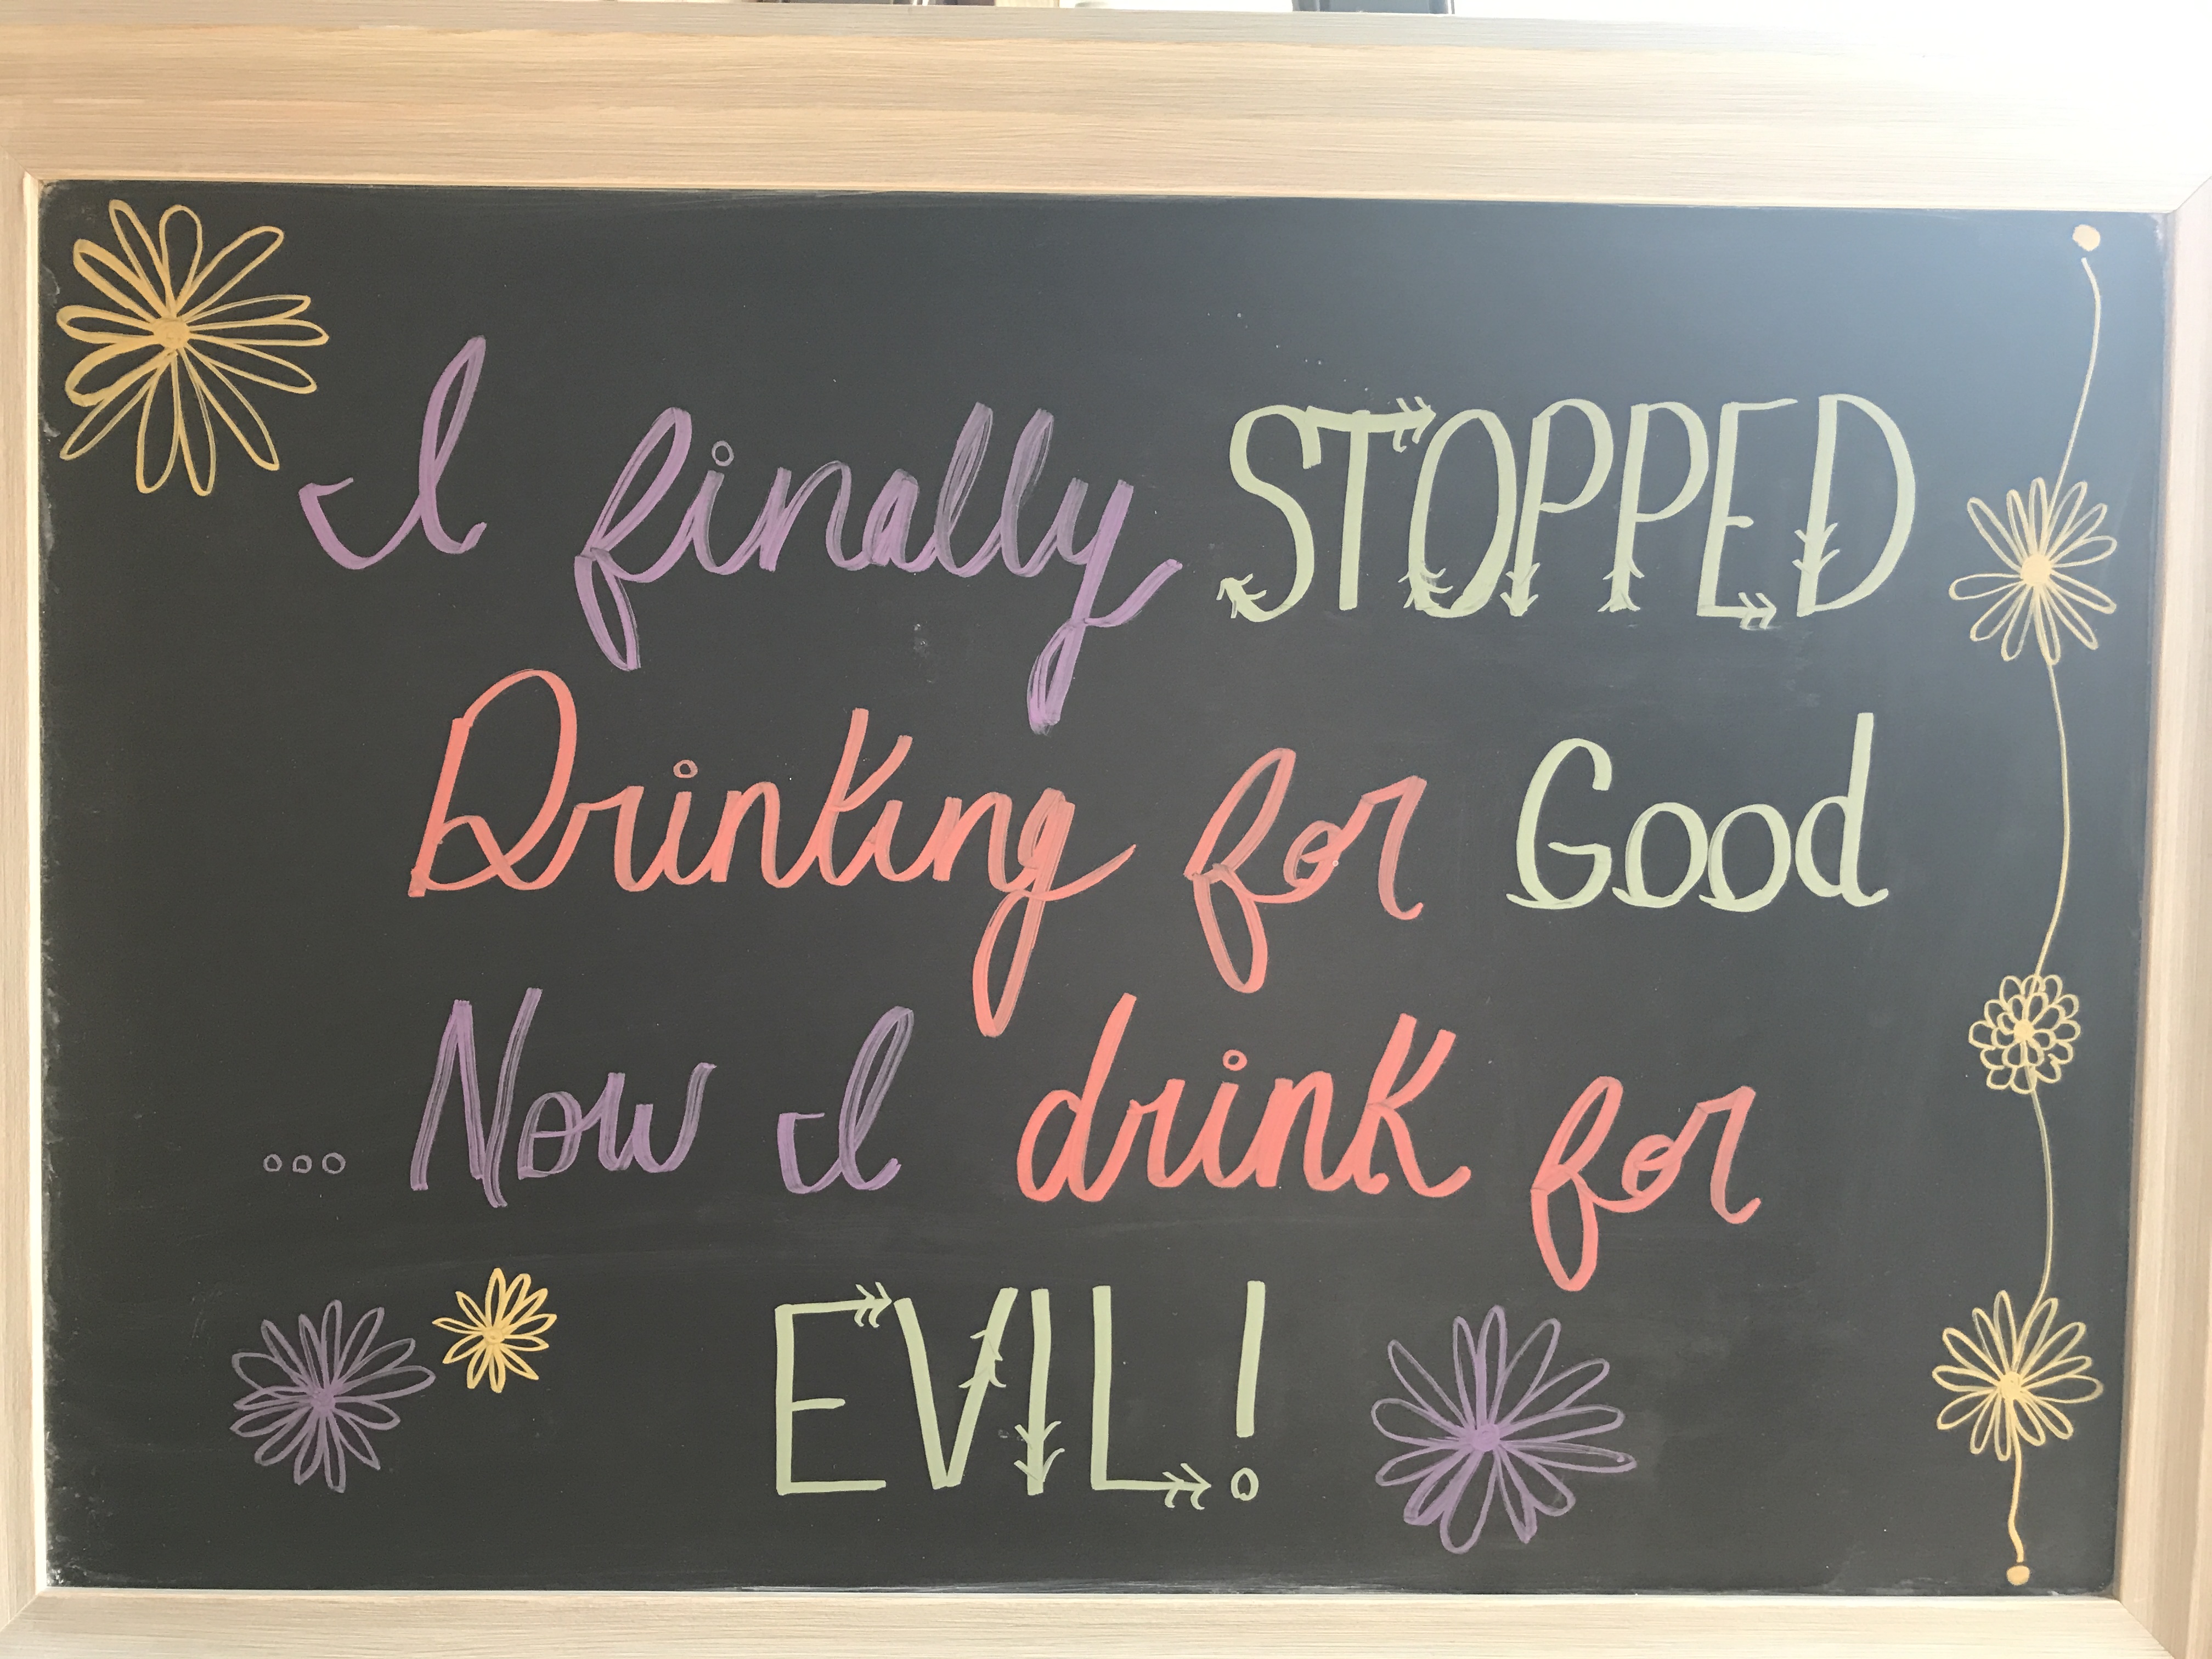 I finally STOPPED
Drinking for Good
... Now I drink for
EVIL!